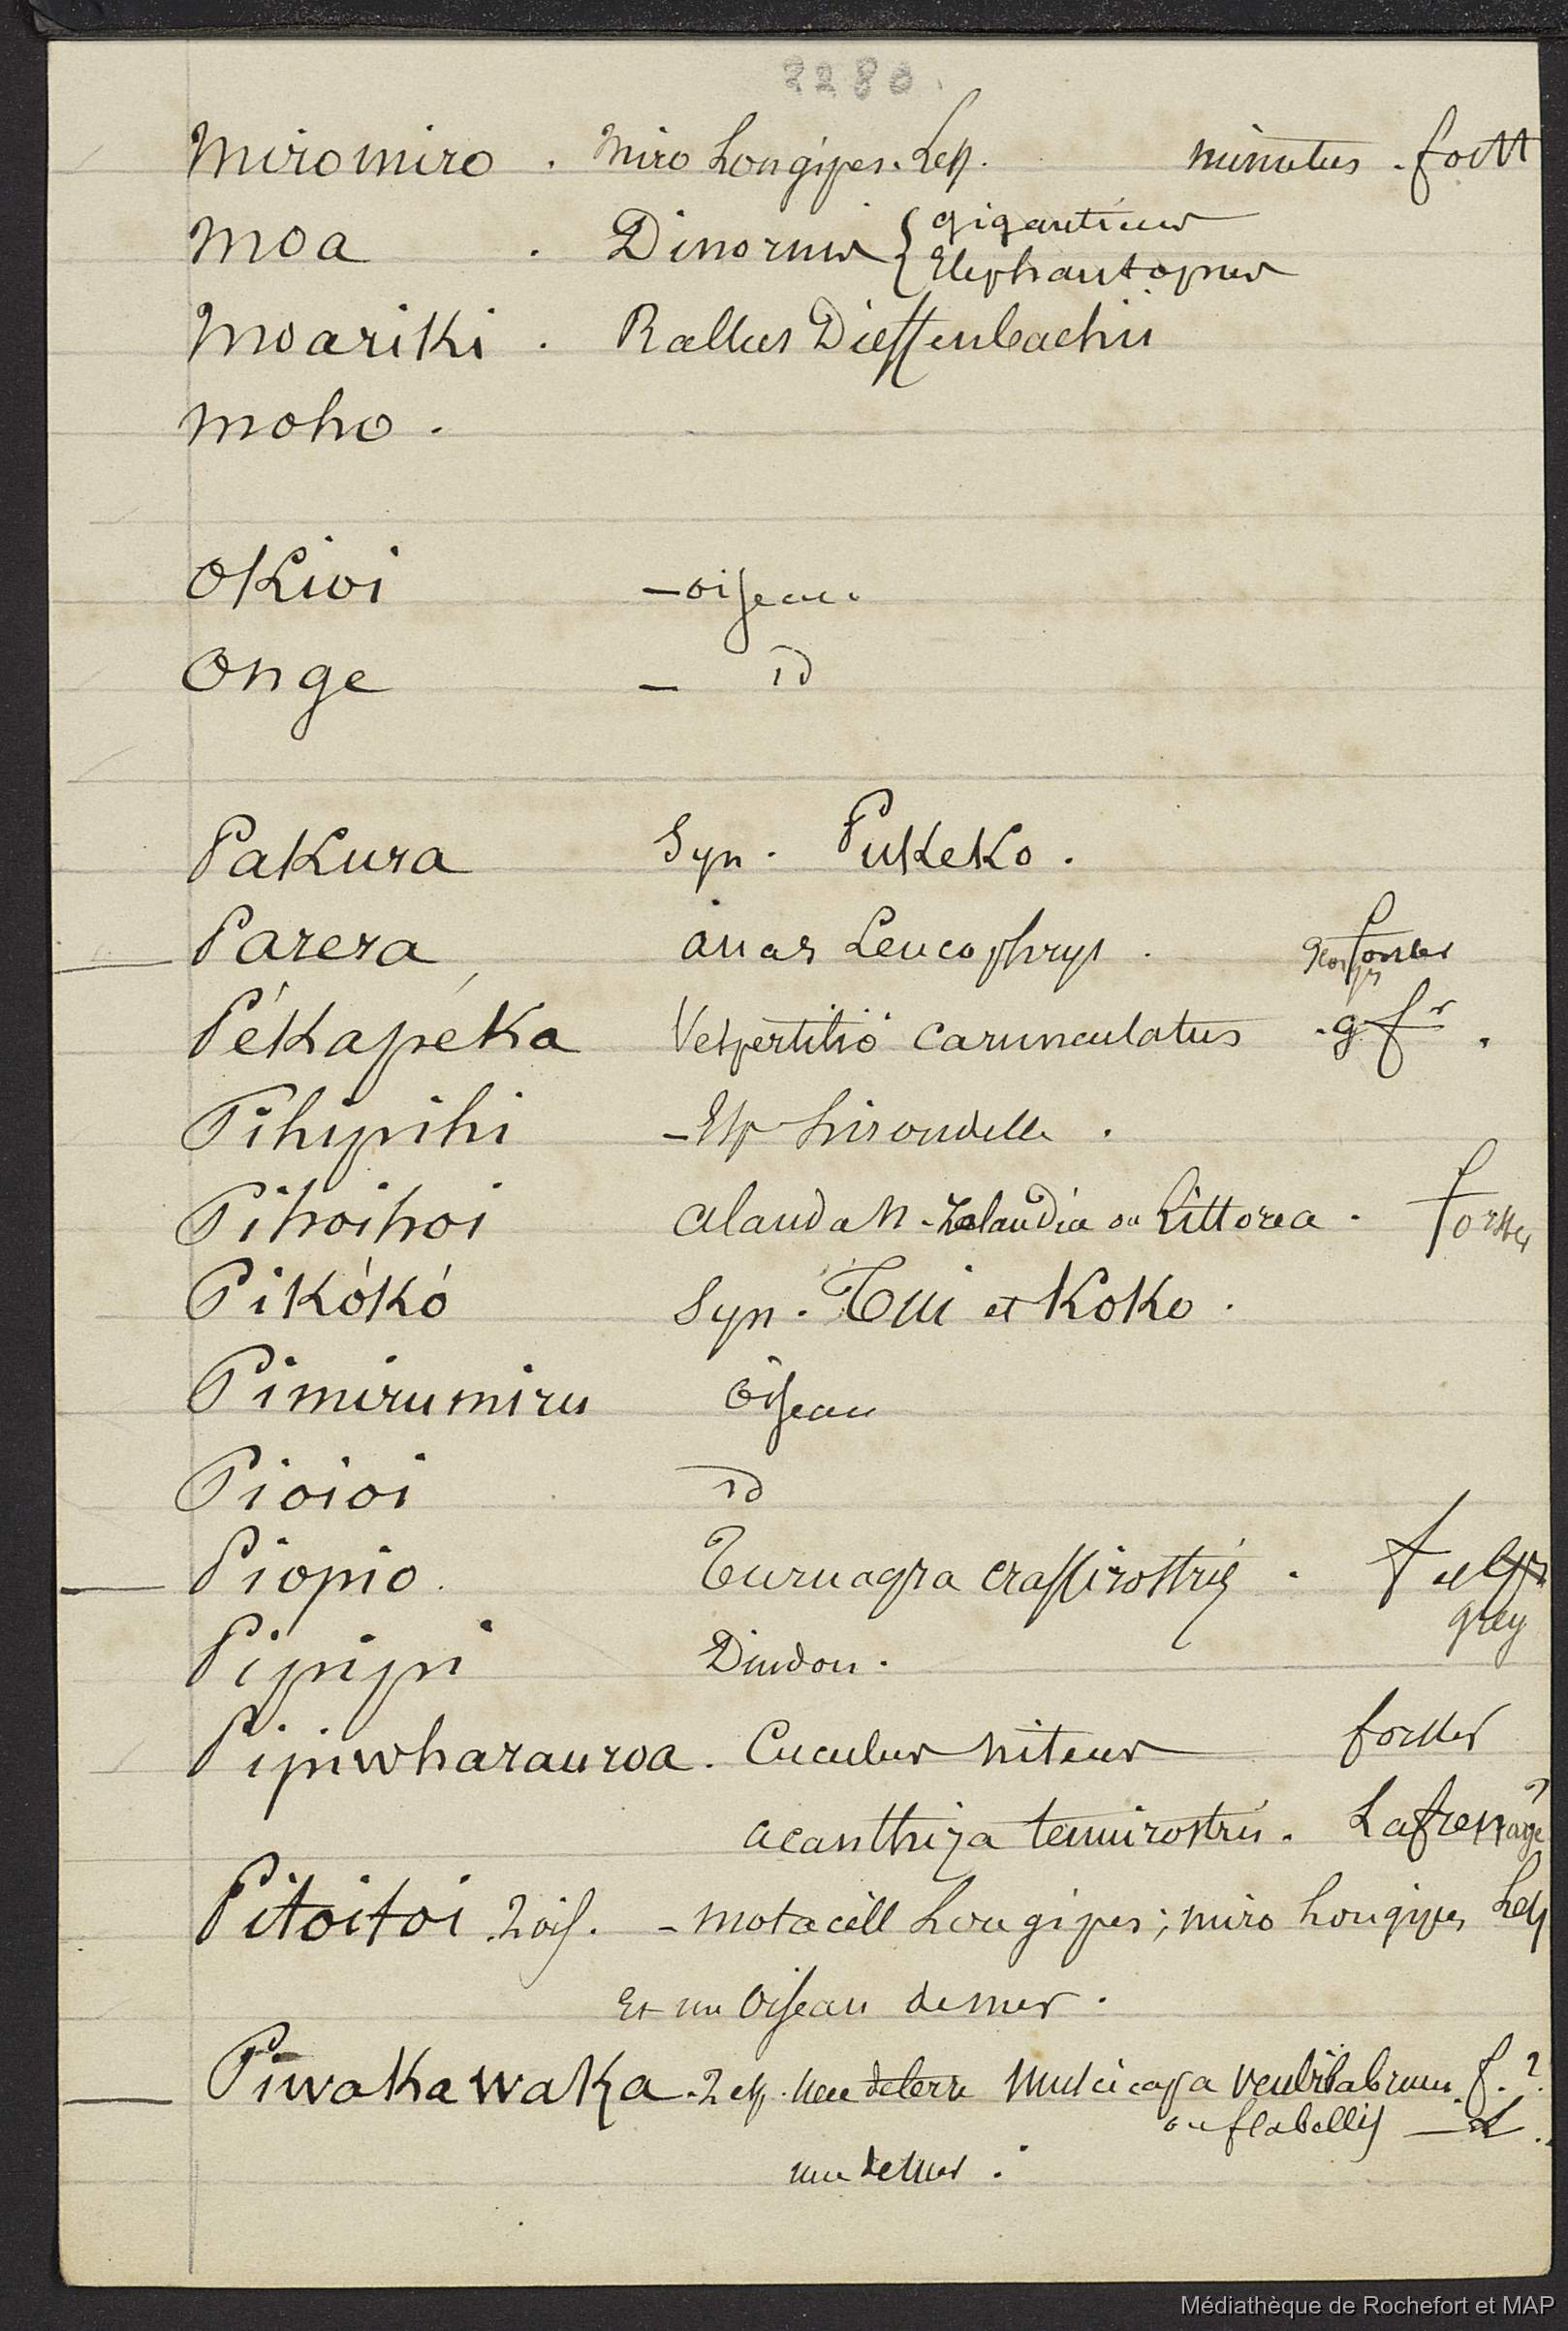 2280.
Miromiro . Miro Longipes. Less. minutus . forst
Moa . Dinornis { giganteus
Elephantopus
Moariki . Rallus Dieffenbachii
Moho .
Okiwi – oiseau.
Onge – id
Pakura Syn . Pukeko .
Parera anas Leucophrys . Georges forster
Pékapéka Vespertilio carunculatus . g. fr .
Pihipihi – Esp hirondelle .
Pihoihoi alauda N. Zelandia ou Littorea . forster
Pikókó Syn . Tui et Koko .
Pimirumiru Oiseau
Pioioi id
Piopio . Turnagra crassirostris .
grey
Pipipi Dindon .
Pipiwharauroa . Cuculus nitens forster
acanthiza tenuirostris . Lafresnaye
Pitoitoi 2 ois. – motacill Longipes ; miro Longipes Less
Et un Oiseau de mer .
Piwakawaka . 2 esp . une de terre Muscicapa ventilabrum . f. ?
ou flabellis — L . .
une de mer .
Médiathèque de Rochefort et MAP